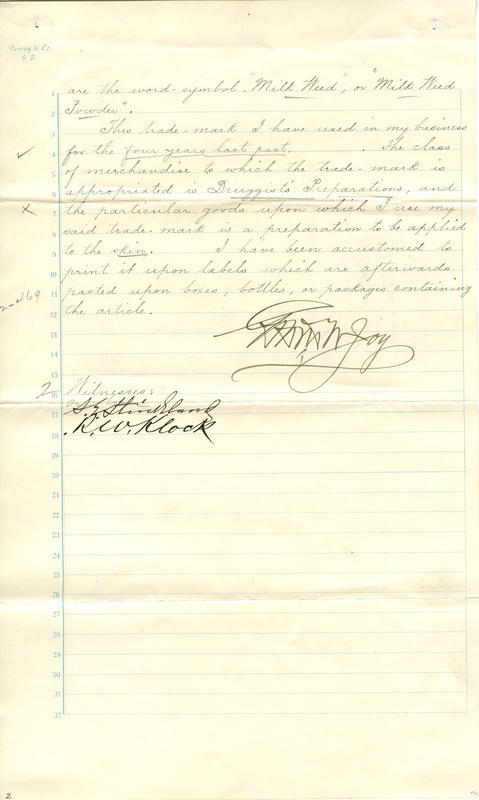 Dewey & Co.
S. F.
1 are the word-symbol "Milk Weed", or "Milk Weed
2 Powder".
3 This trade-mark I have used in my business
4 for the four years last past. The class
5 of merchandise to which the trade-mark is
6 appropriated is Druggists' Preparations, and
7 the particular goods upon which I use my
8 said trade-mark is a preparation to be applied
9 to the skin. I have been accustomed to
10 print it upon labels which are afterwards
11 pasted upon boxes, bottles, or packages containing
12 the article.
13
14 Joy
15
2 16 Witnesses:
17
18 R. W. Klock
19
20
21
22
23
24
25
26
27
28
29
30
31
32
2